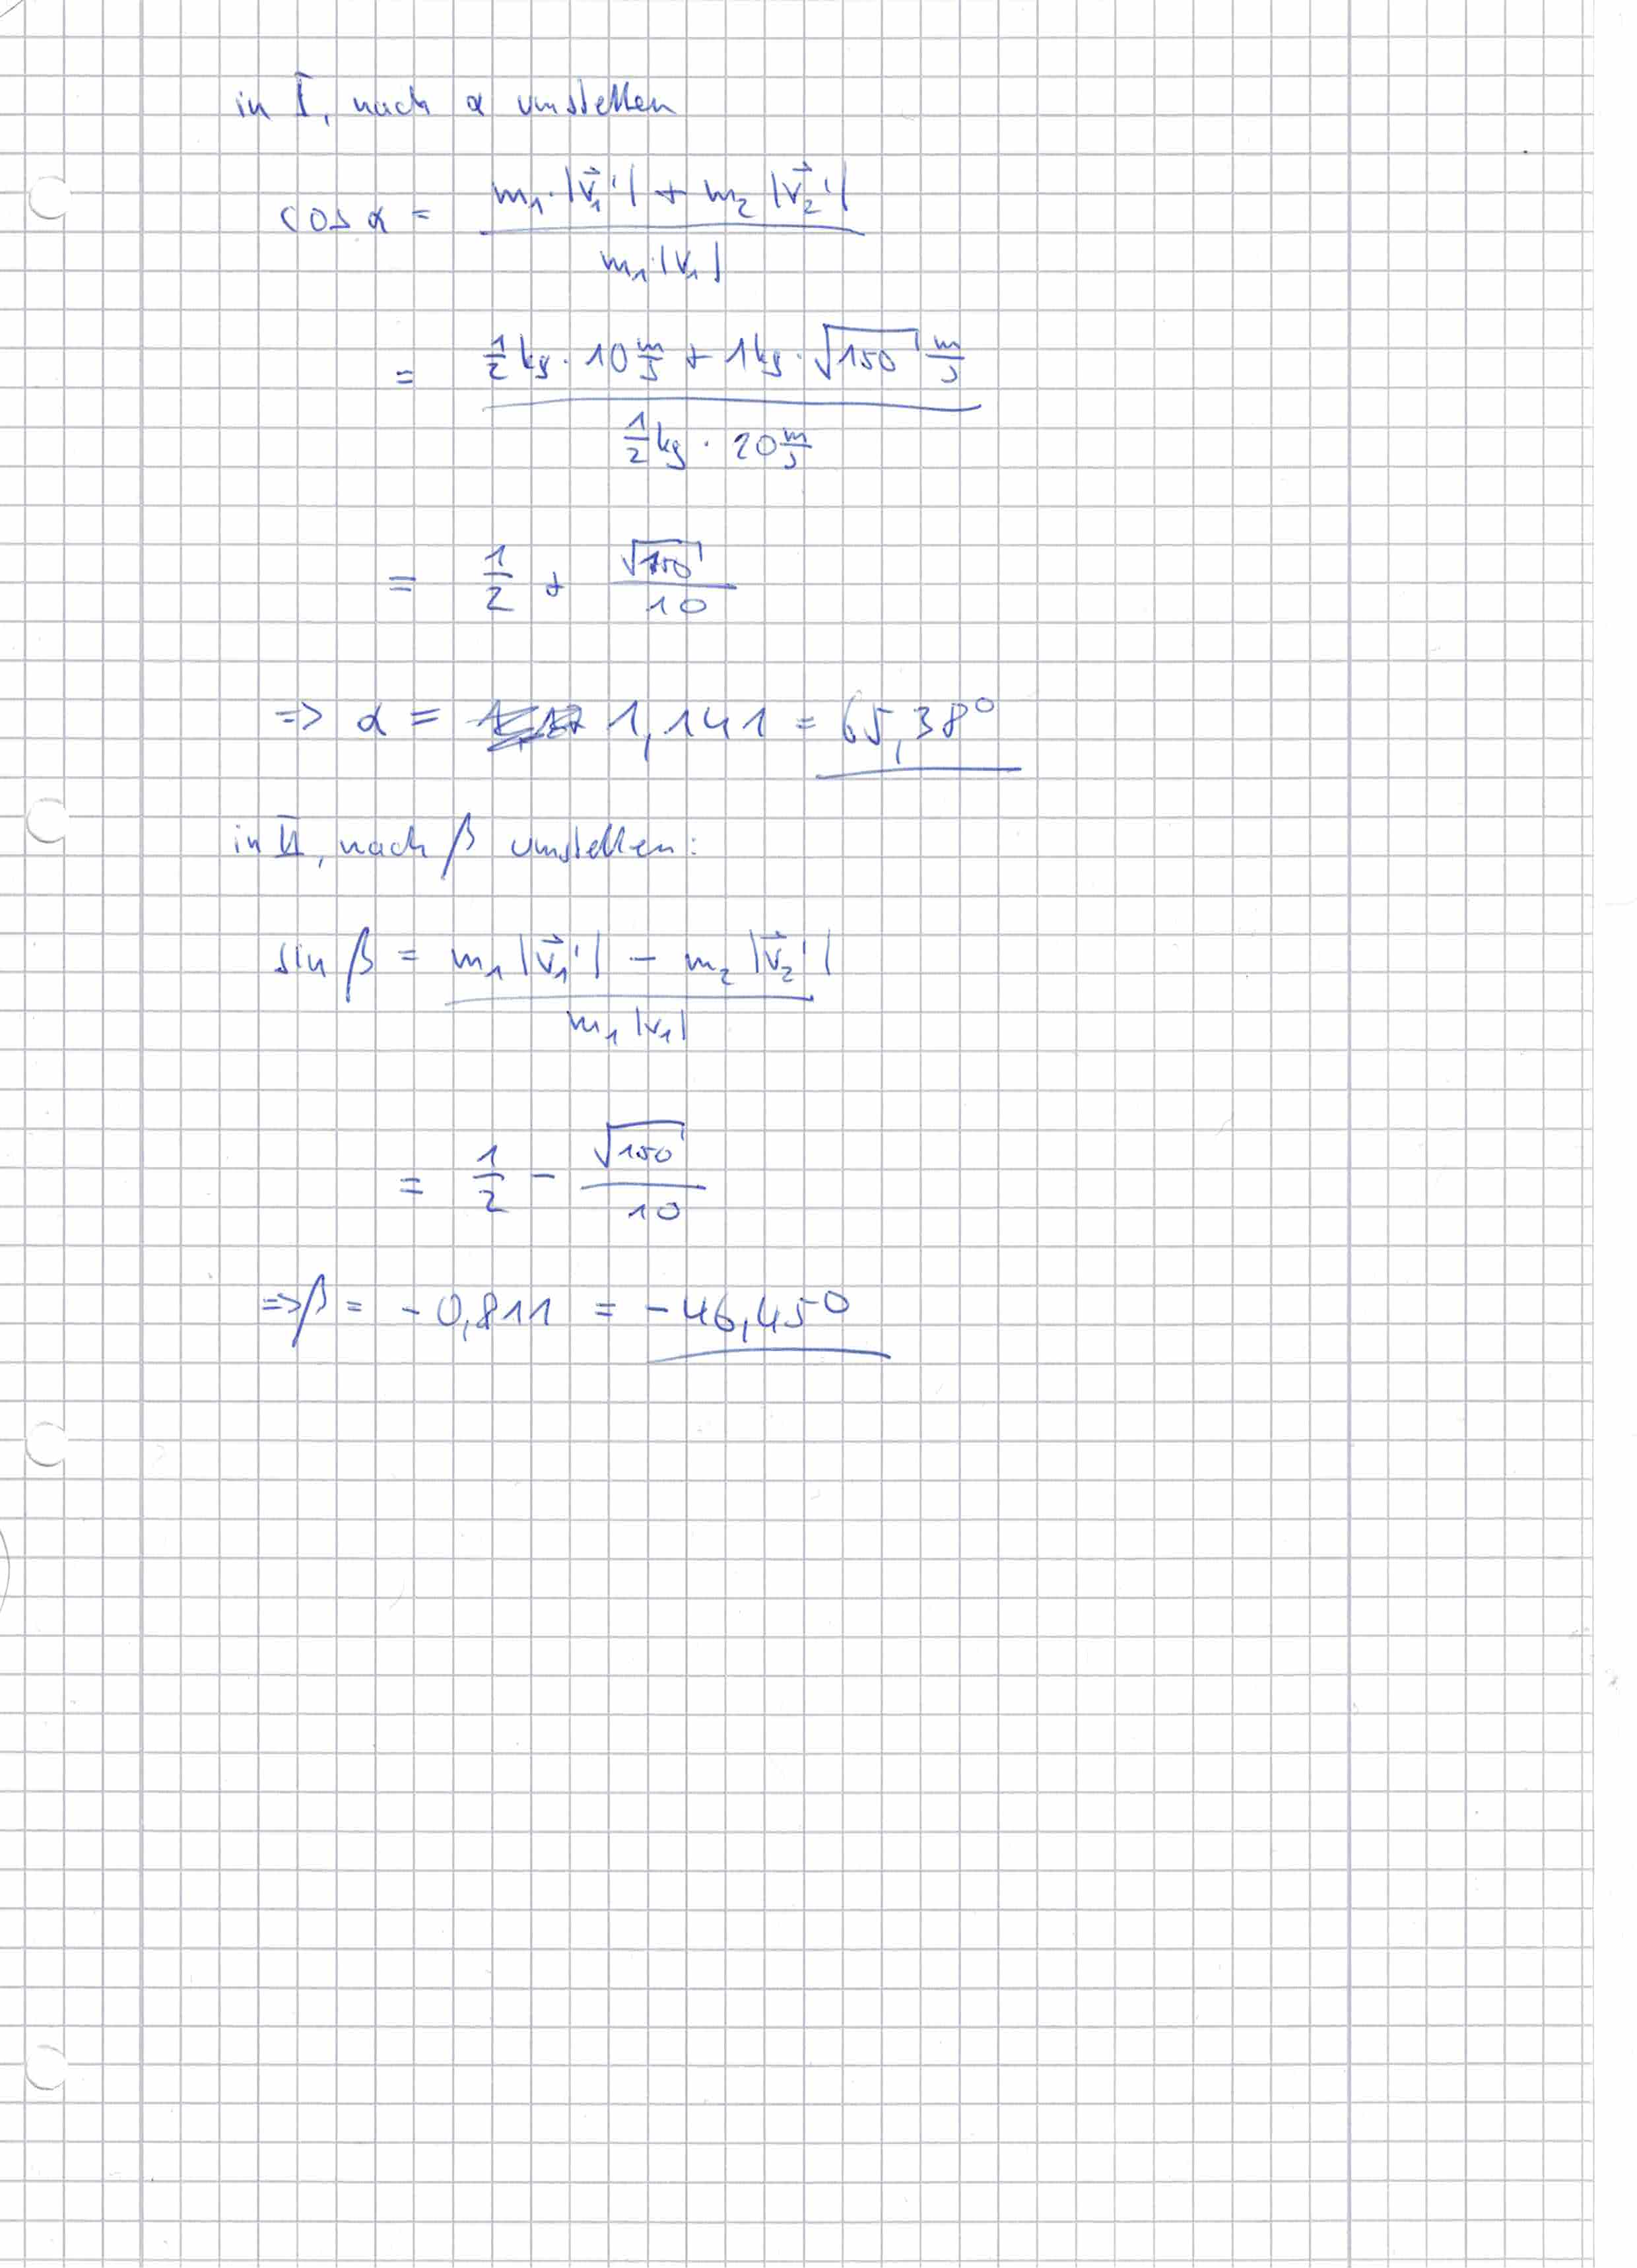 in I, nach α umstellen
cos α = (m₁·|v⃗₁'| + m₂ |v⃗₂'|) / (m₁·|v₁|)
= (1/2 kg · 10 m/s + 1kg · √150 m/s) / (1/2 kg · 20 m/s)
= 1/2 + √150/10
⇒ α = 1,141 = 65,38°
in II, nach β umstellen:
sin β = (m₁ |v⃗₁'| − m₂ |v⃗₂'|) / (m₁ |v₁|)
= 1/2 − √150/10
⇒ β = −0,811 = −46,45°